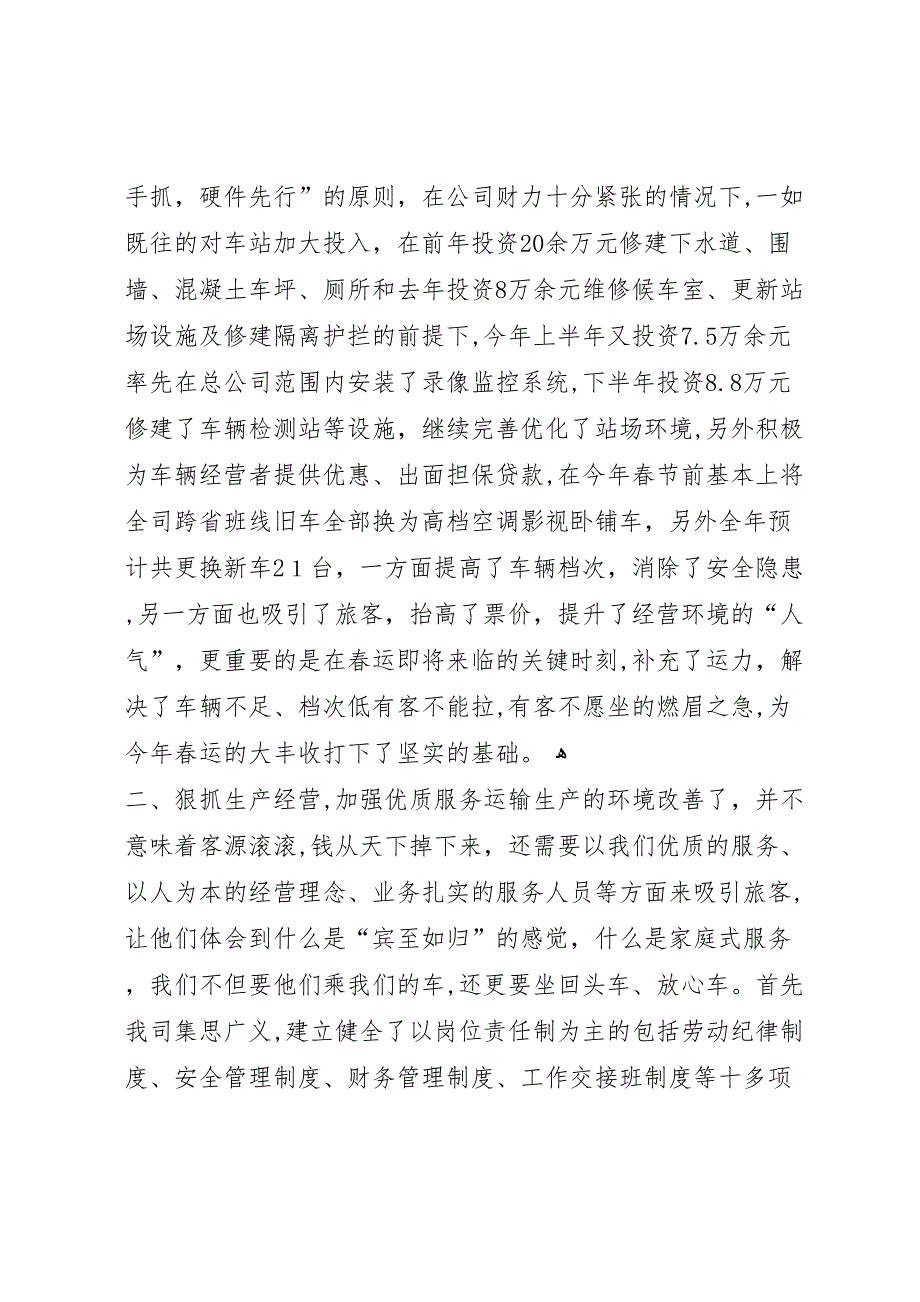 手抓，硬件先行”的原则，在公司财力十分紧张的情况下,一如
既往的对车站加大投入，在前年投资20余万元修建下水道、围
墙、混凝土车坪、厕所和去年投资8万余元维修候车室、更新站
场设施及修建隔离护拦的前提下,今年上半年又投资7.5万余元
率先在总公司范围内安装了录像监控系统,下半年投资8.8万元
修建了车辆检测站等设施，继续完善优化了站场环境,另外积极
为车辆经营者提供优惠、出面担保贷款,在今年春节前基本上将
全司跨省班线旧车全部换为高档空调影视卧铺车，另外全年预
计共更换新车21台，一方面提高了车辆档次，消除了安全隐患
,另一方面也吸引了旅客，抬高了票价，提升了经营环境的“人
气”，更重要的是在春运即将来临的关键时刻,补充了运力，解
决了车辆不足、档次低有客不能拉,有客不愿坐的燃眉之急,为
今年春运的大丰收打下了坚实的基础。 ﻫ
二、狠抓生产经营,加强优质服务运输生产的环境改善了，并不
意味着客源滚滚,钱从天下掉下来，还需要以我们优质的服务、
以人为本的经营理念、业务扎实的服务人员等方面来吸引旅客,
让他们体会到什么是“宾至如归”的感觉，什么是家庭式服务
，我们不但要他们乘我们的车,还更要坐回头车、放心车。首先
我司集思广义,建立健全了以岗位责任制为主的包括劳动纪律制
度、安全管理制度、财务管理制度、工作交接班制度等十多项